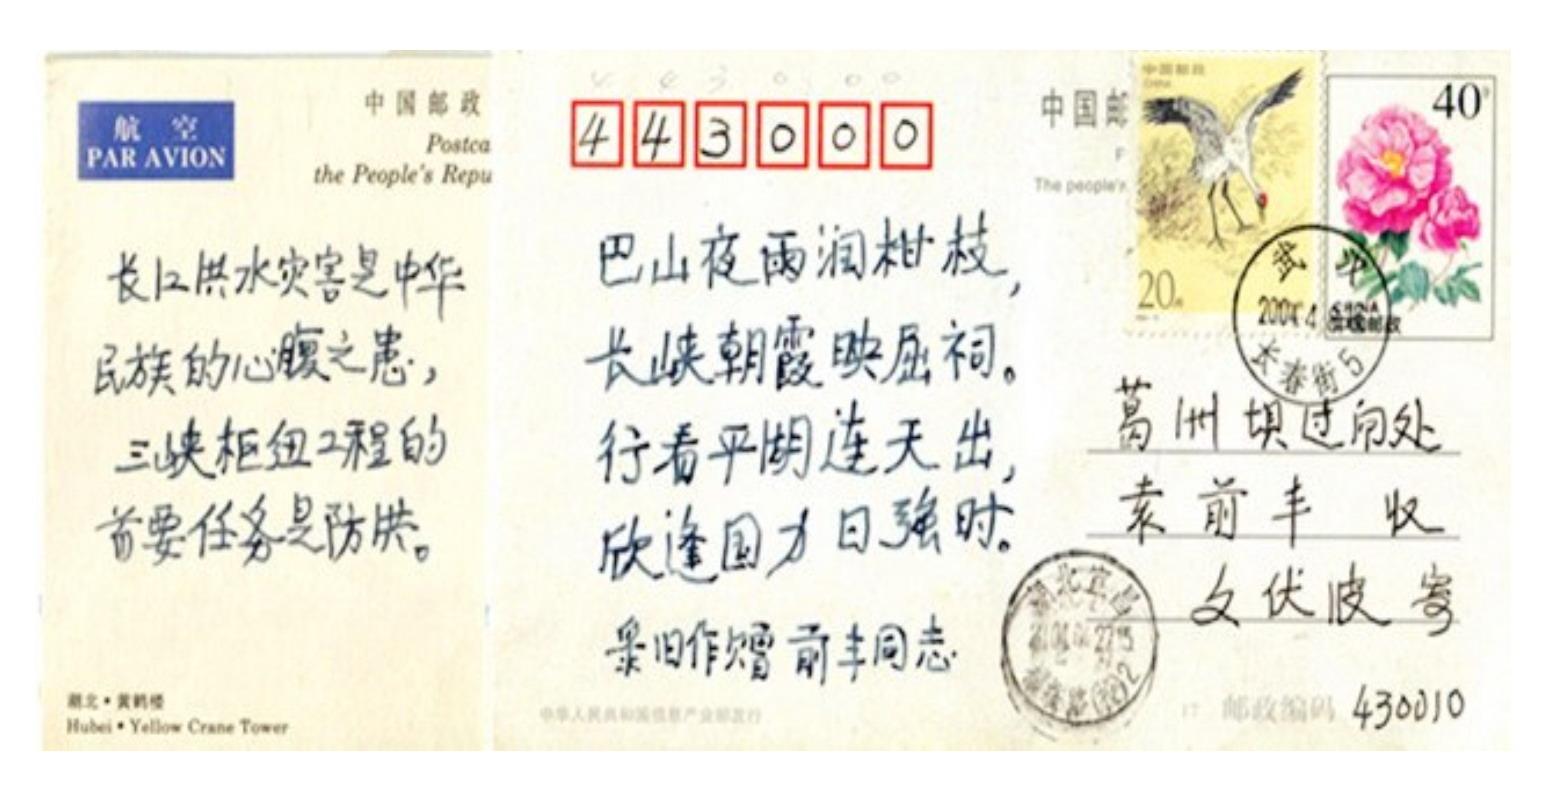 航空
PAR AVION
中国邮政
Postca
the People's Repu
长江洪水灾害是中华
民族的心腹之患，
三峡枢纽工程的
首要任务是防洪。
湖北·黄鹤楼
Hubei·Yellow Crane Tower
4 4 3 0 0 0
443000
巴山夜雨润柑枝，
长峡朝霞映屈祠。
行看平湖连天出，
欣逢国力日强时。
录旧作赠前丰同志
中华人民共和国信息产业部发行
中国邮
P
The people's
中国邮政
CHINA
20分
40分
CHINA
中国邮政
武汉
2004.4
长春街5
葛洲坝过闸处
袁前丰 收
文伏波寄
湖北宜昌
邮政编码 430010